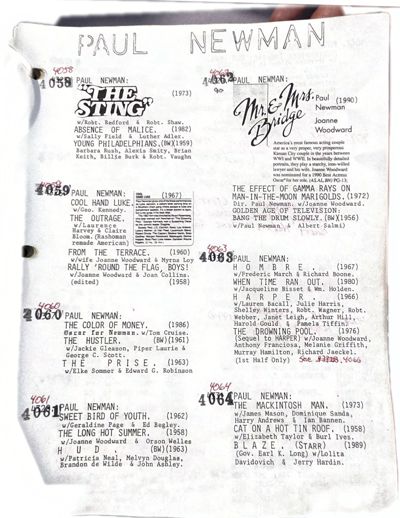 PAUL NEWMAN
4058
4058 PAUL NEWMAN:
"THE STING" (1973)
w/Robt. Redford & Robt. Shaw.
ABSENCE OF MALICE. (1982)
w/Sally Field & Luther Adler.
YOUNG PHILADELPHIANS.(BW)(1959)
Barbara Rush, Alexis Smity, Brian
Keith, Billie Burk & Robt. Vaughn
4059
4059 PAUL NEWMAN: (1967)
COOL HAND LUKE.
w/Geo. Kennedy.
THE OUTRAGE.
w/Laurence
Harvey & Claire
Bloom.(Rashoman
remade American)
FROM THE TERRACE. (1960)
w/wife Joanne Woodward & Myrna Loy
RALLY 'ROUND THE FLAG, BOYS!
w/Joanne Woodward & Joan Collins.
(edited) (1958)
4060
4060 PAUL NEWMAN:
THE COLOR OF MONEY. (1986)
Oscar for Newman. w/Tom Cruise.
THE HUSTLER. (BW)(1961)
w/Jackie Gleason, Piper Laurie &
George C. Scott.
THE PRISE. (1963)
w/Elke Sommer & Edward G. Robinson
4061
4061 PAUL NEWMAN:
SWEET BIRD OF YOUTH. (1962)
w/Geraldine Page & Ed Begley.
THE LONG HOT SUMMER. (1958)
w/Joanne Woodward & Orson Welles
HUD. (BW)(1963)
w/Patricia Neal, Melvyn Douglas,
Brandon de Wilde & John Ashley.
4062
4062 PAUL NEWMAN:
90
Mr. & Mrs. Bridge
Paul (1990)
Newman
Joanne
Woodward
America's most famous acting couple
star as a very proper, very prosperous
Kansas City couple in the years between
WWI and WWII. In beautifully detailed
portraits, they play a starchy, iron-willed
lawyer and his wife. Joanne Woodward
was nominated for a 1990 Best Actress
Oscar for her role.
THE EFFECT OF GAMMA RAYS ON
MAN-IN-THE-MOON MARIGOLDS.(1972)
Dir. Paul Newman. w/Joanne Woodward.
GOLDEN AGE OF TELEVISION:
BANG THE DRUM SLOWLY. (BW)(1956)
w/Paul Newman & Albert Salmi)
4063
4063 PAUL NEWMAN:
HOMBRE. (1967)
w/Frederic March & Richard Boone.
WHEN TIME RAN OUT. (1980)
w/Jacqueline Bisset & Wm. Holden.
HARPER. (1966)
w/Lauren Bacall, Julie Harris,
Shelley Winters, Robt. Wagner, Robt.
Webber, Janet Leigh, Arthur Hill,
Harold Gould & Pamela Tiffin.
THE DROWNING POOL. (1976)
(Sequel to HARPER) w/Joanne Woodward,
Anthony Franciosa, Melanie Griffith,
Murray Hamilton, Richard Jaeckel.
(1st Half Only) See 4066
4064
4064 PAUL NEWMAN:
THE MACKINTOSH MAN. (1973)
w/James Mason, Dominique Sanda,
Harry Andrews & Ian Bannen.
CAT ON A HOT TIN ROOF. (1958)
w/Elizabeth Taylor & Burl Ives.
BLAZE. (STARR) (1989)
(Gov. Earl K. Long) w/Lolita
Davidovich & Jerry Hardin.